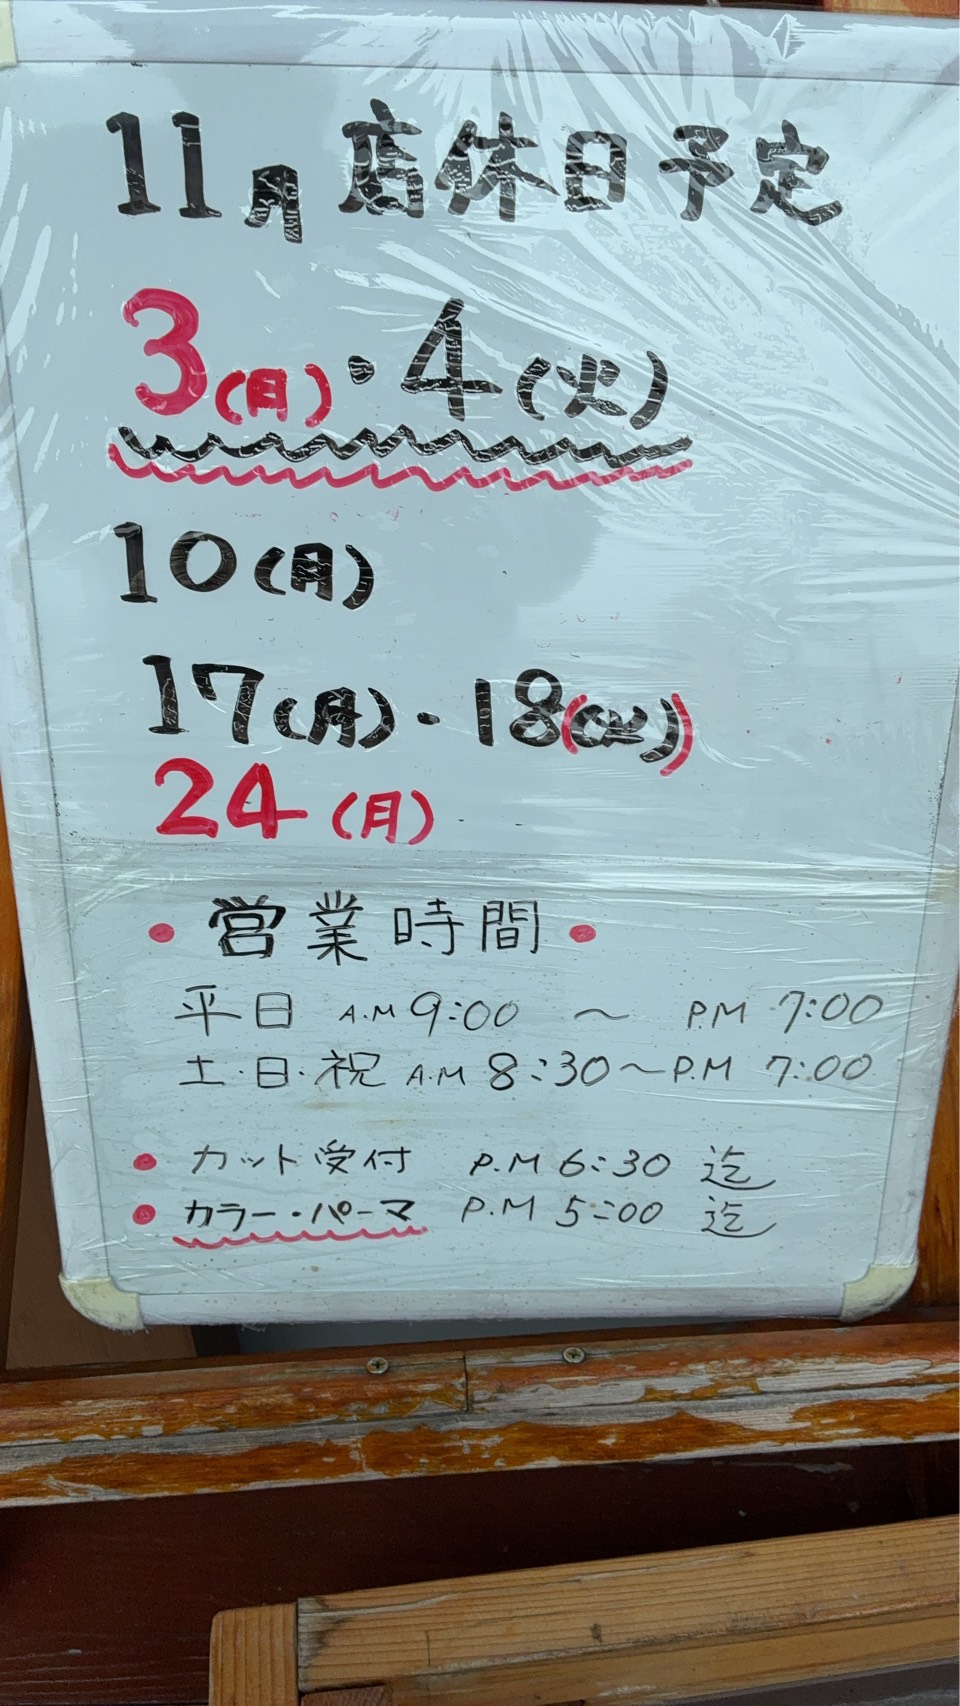 11月 店休日予定
3(月)・4(火)
10(月)
17(月)・18(火)
24(月)
• 営業時間 •
平日 A.M 9:00 〜 P.M 7:00
土・日・祝 A.M 8:30〜P.M 7:00
• カット受付 P.M 6:30 迄
• カラー・パーマ P.M 5:00 迄